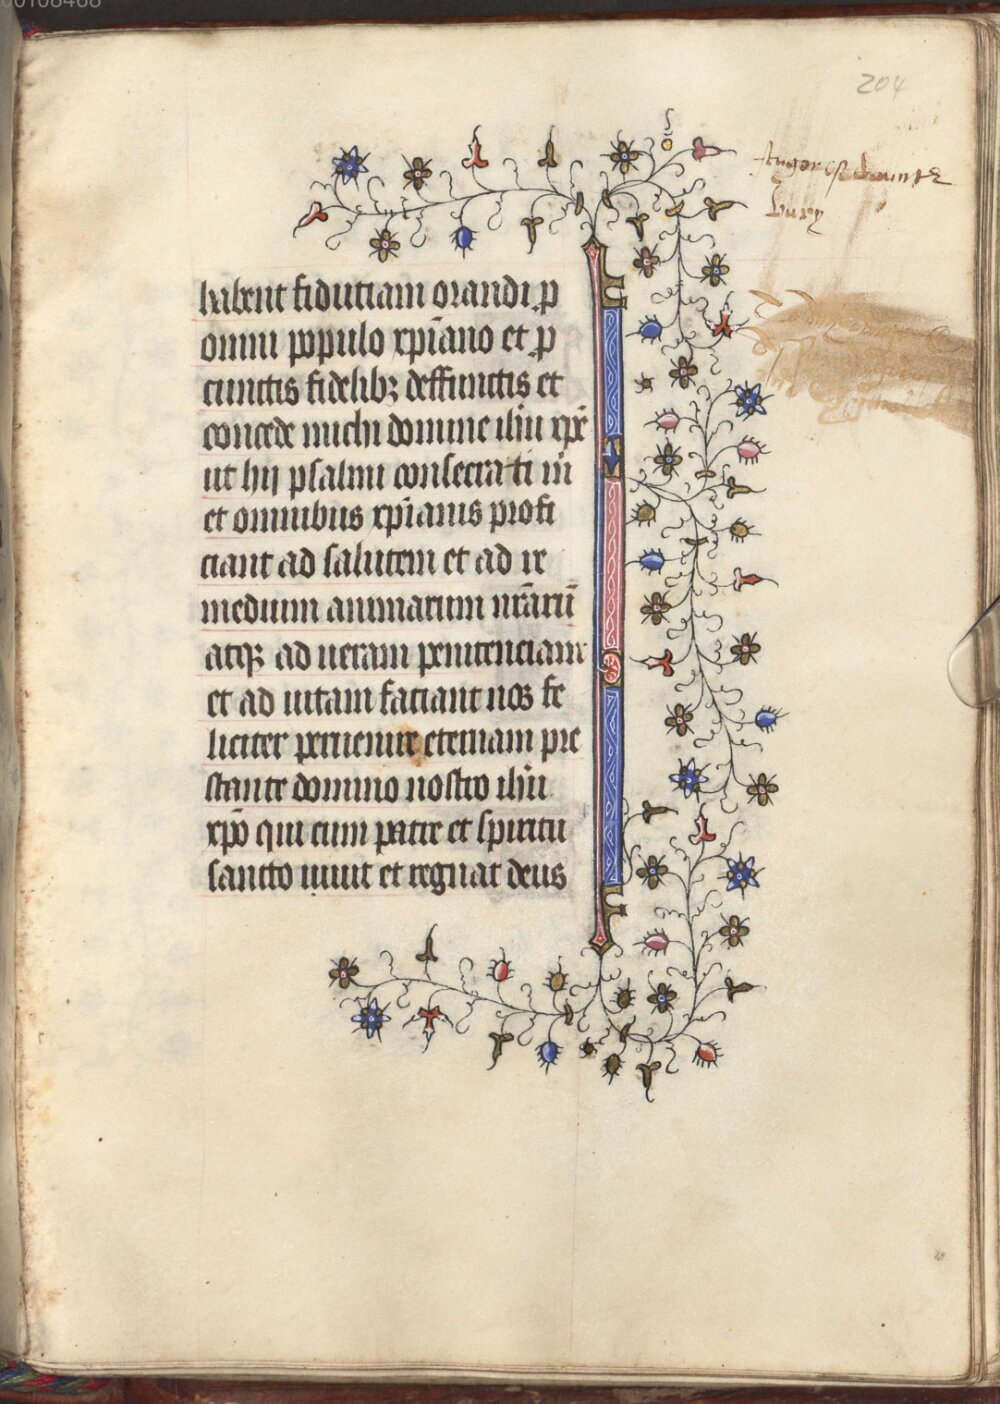 00108468
204
habent fidutiam orandi ꝓ
omni populo xp̄iano et ꝓ
cunctis fidelibꝫ deffunctis et
concede michi domine ihū xp̄e
ut hii psalmi consecrati m̄
et omnibus xp̄ianis profi
ciant ad salutem et ad re
medium animarum nr̄arū
atqꝫ ad ueram penitenciam
et ad uitam faciant nos fe
liciter peruenire eternam pre
stante domino nostro ihū
xp̄o qui cum patre et spiritu
sancto uiuit et regnat deus
bury